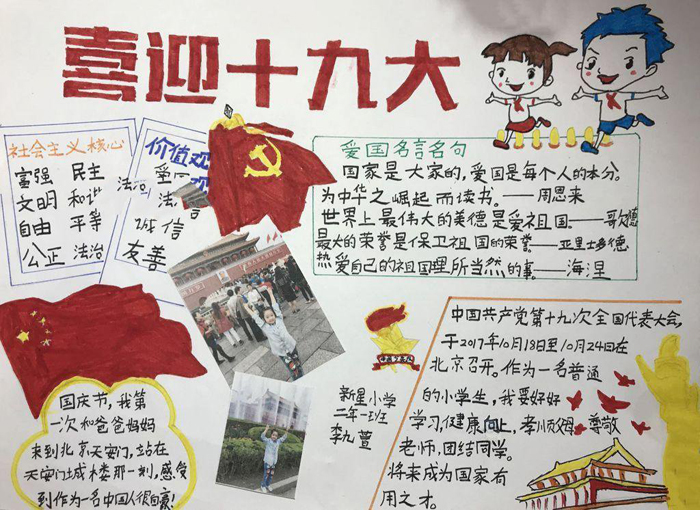 喜迎十九大
社会主义核心
富强 民主
文明 和谐
自由 平等
公正 法治
价值观
法治
诚信
友善
爱国名言名句
国家是大家的,爱国是每个人的本分。
为中华之崛起而读书。——周恩来
世界上最伟大的美德是爱祖国。——歌德
最大的荣誉是保卫祖国的荣誉——亚里士多德
热爱自己的祖国理所当然的事——海涅
中国共产党第十九次全国代表大会,
于2017年10月18日至10月24日在
北京召开。作为一名普通
的小学生,我要好好
学习,健康向上,孝顺父母,尊敬
老师,团结同学。
将来成为国家有
用之才。
新星小学
二年一班
国庆节,我第
一次和爸爸妈妈
来到北京天安门,站在
天安门城楼那一刻,感受
到作为一名中国人很自豪!